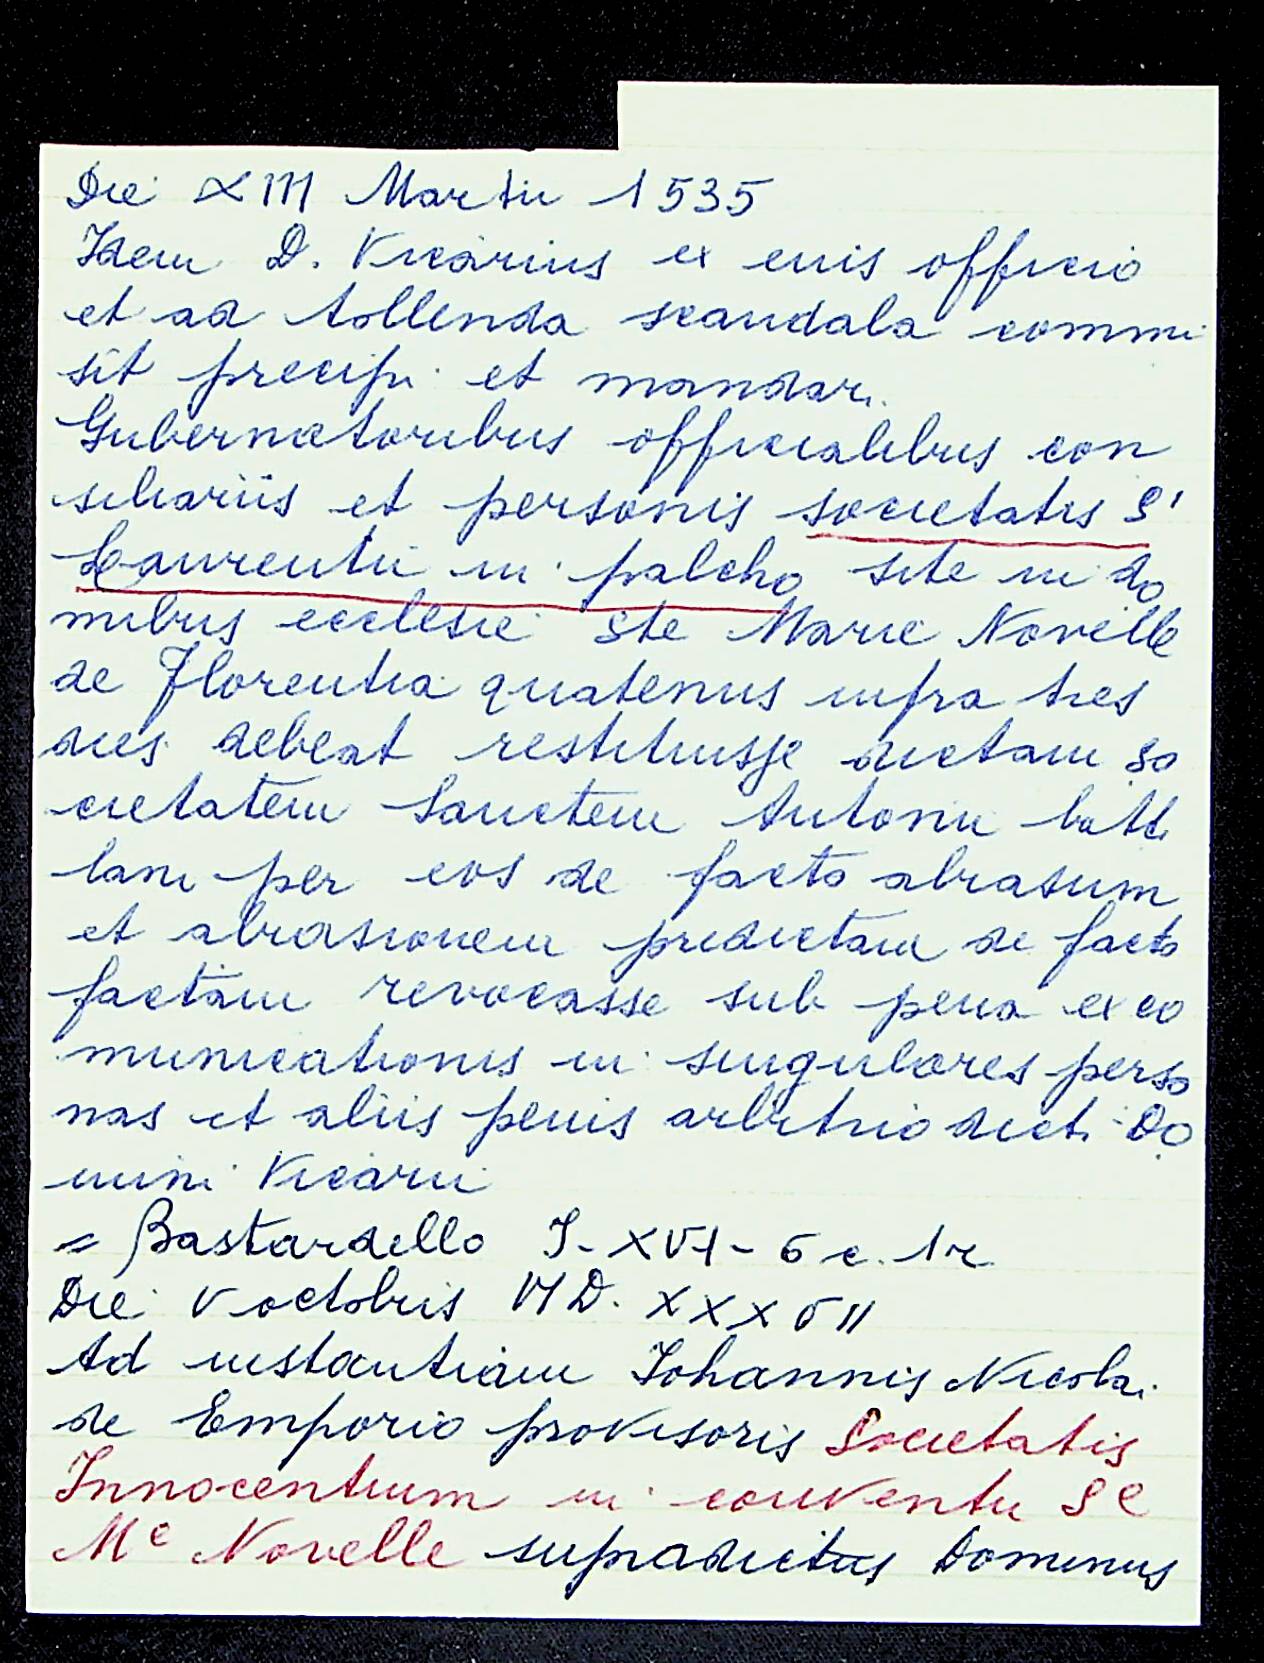 Die XIII Martii 1535
Idem D. Vicarius ex eius officio
et ad tollenda scandala commi
sit precipi et mandari
Gubernatoribus officialibus con
siliariis et personis societatis Sⁱ
Laurentii in palcho site in do
mibus ecclesie Ste Marie Novelle
de Florentia quatenus infra tres
dies debeat restituisse dictam so
cietatem Sanctem Antonii batti
lani per eos de facto abrasum
et abrasionem predictam de facto
factam revocasse sub pena exco
municationis in singulares perso
nas et aliis penis arbitrio dicti Do
mini Vicarii
= Bastardello I-XVI-6 c. 1r
Die V octobris MD. XXXVII
Ad instantiam Johannis Nicolai
de Emporio provisoris Societatis
Innocentium in conventu Sᵉ
Mᵉ Novelle supradictus Dominus